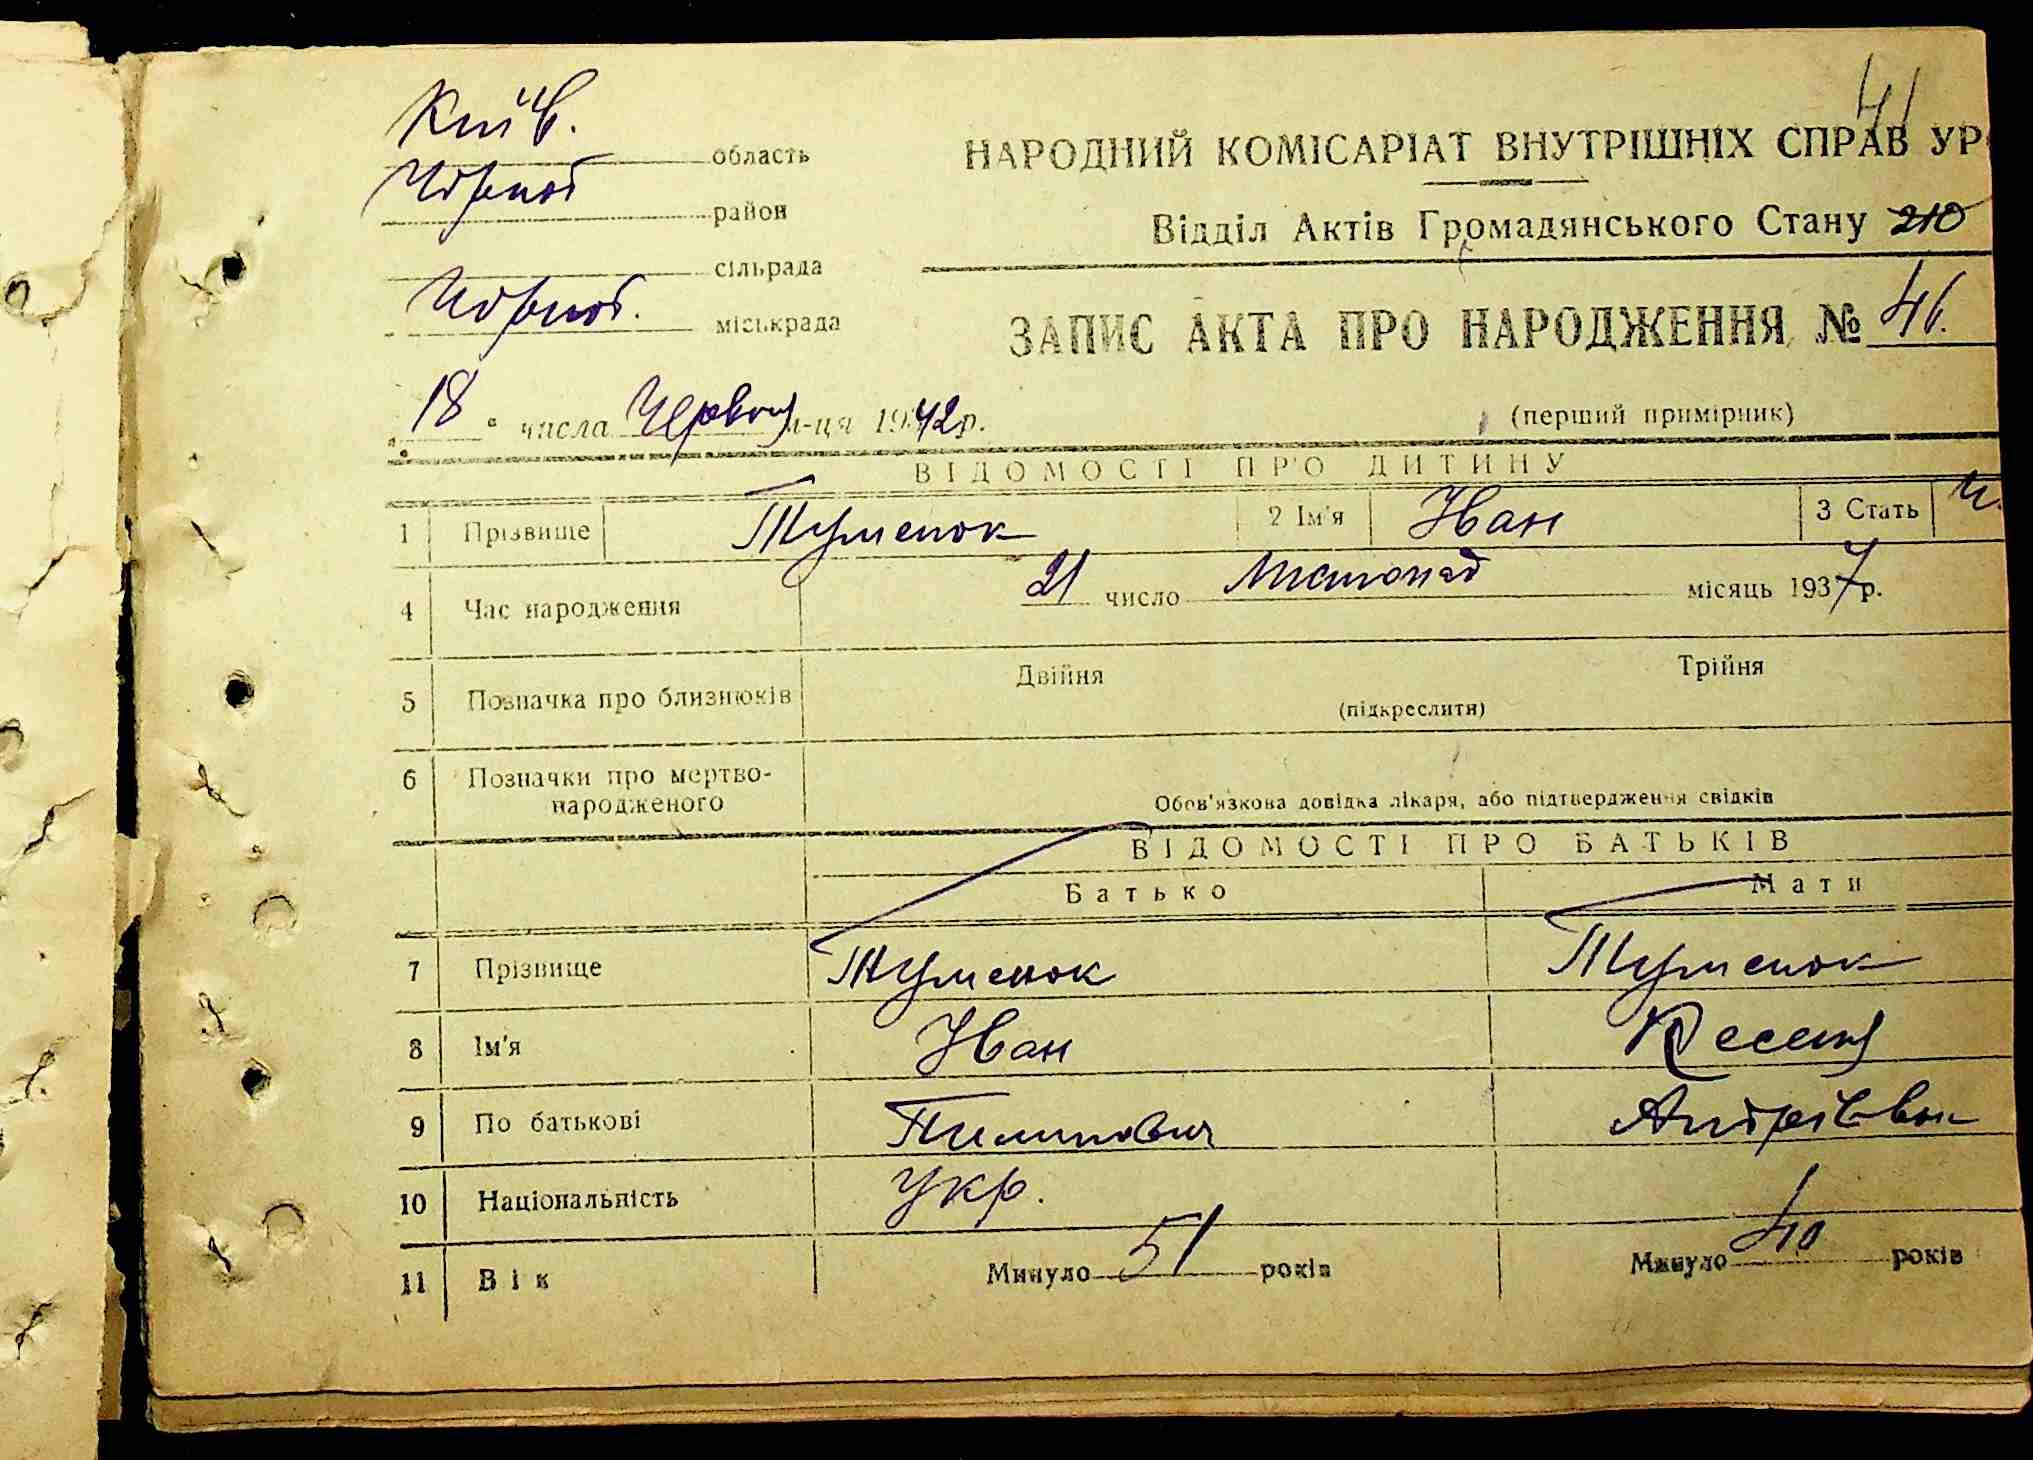 41
Київ. область
Чорноб район
сільрада
Чорноб. міськрада
НАРОДНИЙ КОМІСАРІАТ ВНУТРІШНІХ СПРАВ УР
Відділ Актів Громадянського Стану 210
ЗАПИС АКТА ПРО НАРОДЖЕННЯ № 46.
„18" числа Червня м-ця 1942р.
(перший примірник)
ВІДОМОСТІ ПРО ДИТИНУ
1 Прізвище Туменок 2 Ім'я Іван 3 Стать Ч.
4 Час народження 21 число Листопад місяць 1937р.
5 Позначка про близнюків Двійня Трійня
(підкреслити)
6 Позначки про мертво-
народженого Обов'язкова довідка лікаря, або підтвердження свідків
ВІДОМОСТІ ПРО БАТЬКІВ
Батько Мати
7 Прізвище Туменок Туменок
8 Ім'я Іван Ксенія
9 По батькові Пилипович Андріївна
10 Національність Укр.
11 Вік Минуло 51 років Минуло 40 років